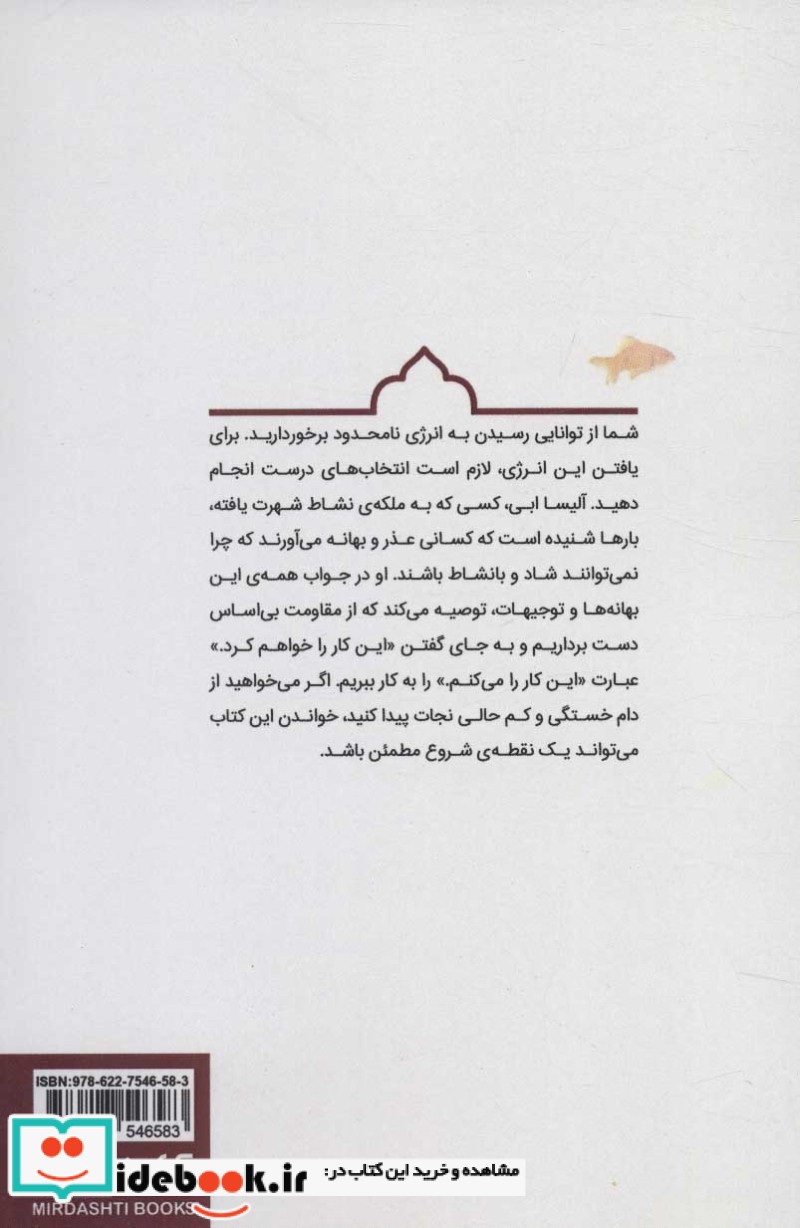 شما از توانایی رسیدن به انرژی نامحدود برخوردارید. برای
یافتن این انرژی، لازم است انتخاب‌های درست انجام
دهید. آلیسا ابی، کسی که به ملکه‌ی نشاط شهرت یافته،
بارها شنیده است که کسانی عذر و بهانه می‌آورند که چرا
نمی‌توانند شاد و بانشاط باشند. او در جواب همه‌ی این
بهانه‌ها و توجیهات، توصیه می‌کند که از مقاومت بی‌اساس
دست برداریم و به جای گفتن «این کار را خواهم کرد.»
عبارت «این کار را می‌کنم.» را به کار ببریم. اگر می‌خواهید از
دام خستگی و کم حالی نجات پیدا کنید، خواندن این کتاب
می‌تواند یک نقطه‌ی شروع مطمئن باشد.
ISBN:978-622-7546-58-3
546583
مشاهده و خرید این کتاب در:
idebook.ir
MIRDASHTI BOOKS